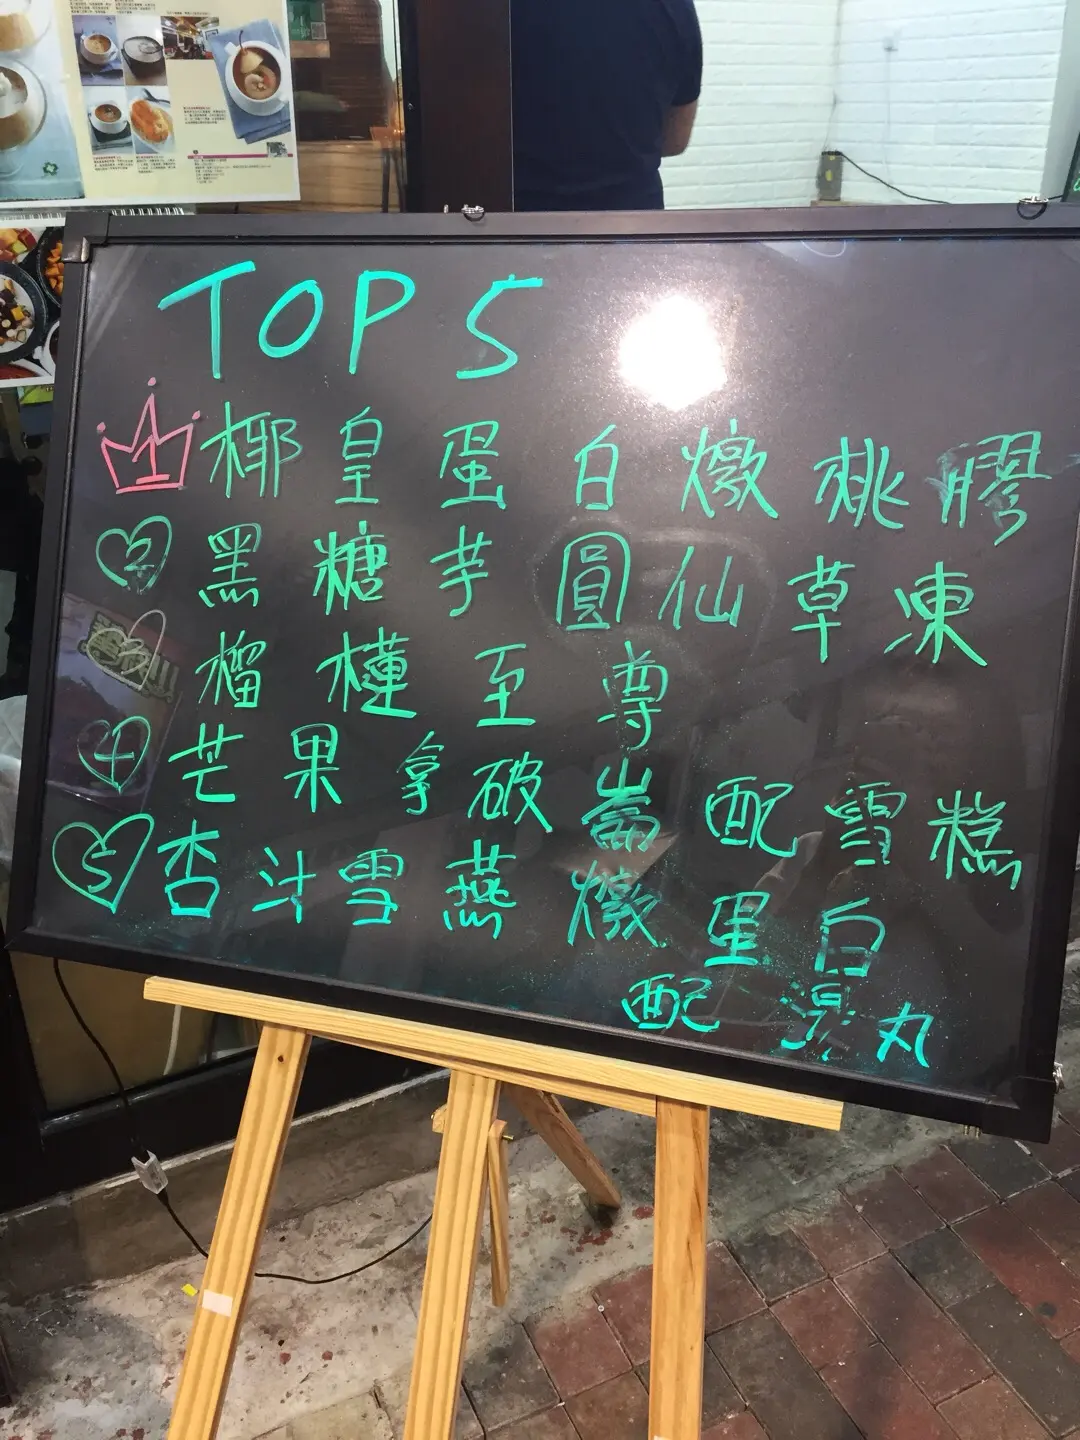 TOP 5
1 椰皇蛋白燉桃膠
2 黑糖芋圓仙草凍
3 榴槤至尊
4 芒果拿破崙配雪糕
5 杏汁雪燕燉蛋白
配湯丸